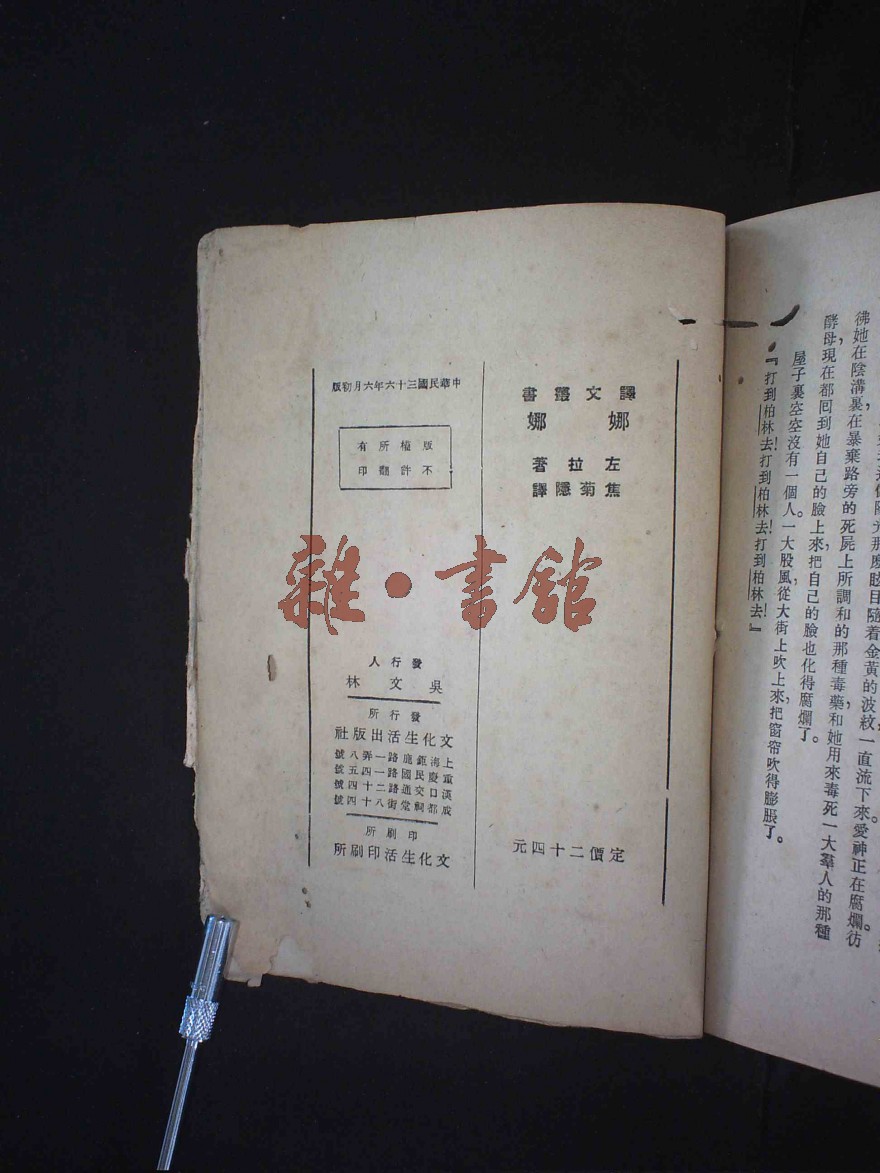 彿她在陰溝裏在暴棄路旁的死屍上所調和的那種毒藥和她用來毒死一大羣人的那種
酵母,現在都回到她自己的臉上來,把自己的臉也化得腐爛了。
屋子裏空空沒有一個人。一大股風從大街上吹上來,把窗帘吹得膨脹了。
『打到柏林去!打到柏林去!打到柏林去!』
譯文叢書
娜娜
左拉著
焦菊隱譯
定價二十四元
中華民國三十六年六月初版
版權所有
不許翻印
雜·書館
發行人
吳文林
發行所
文化生活出版社
上海鉅鹿路一弄八號
重慶民國路一四五號
漢口交通路二十四號
成都祠堂街八十四號
印刷所
文化生活印刷所